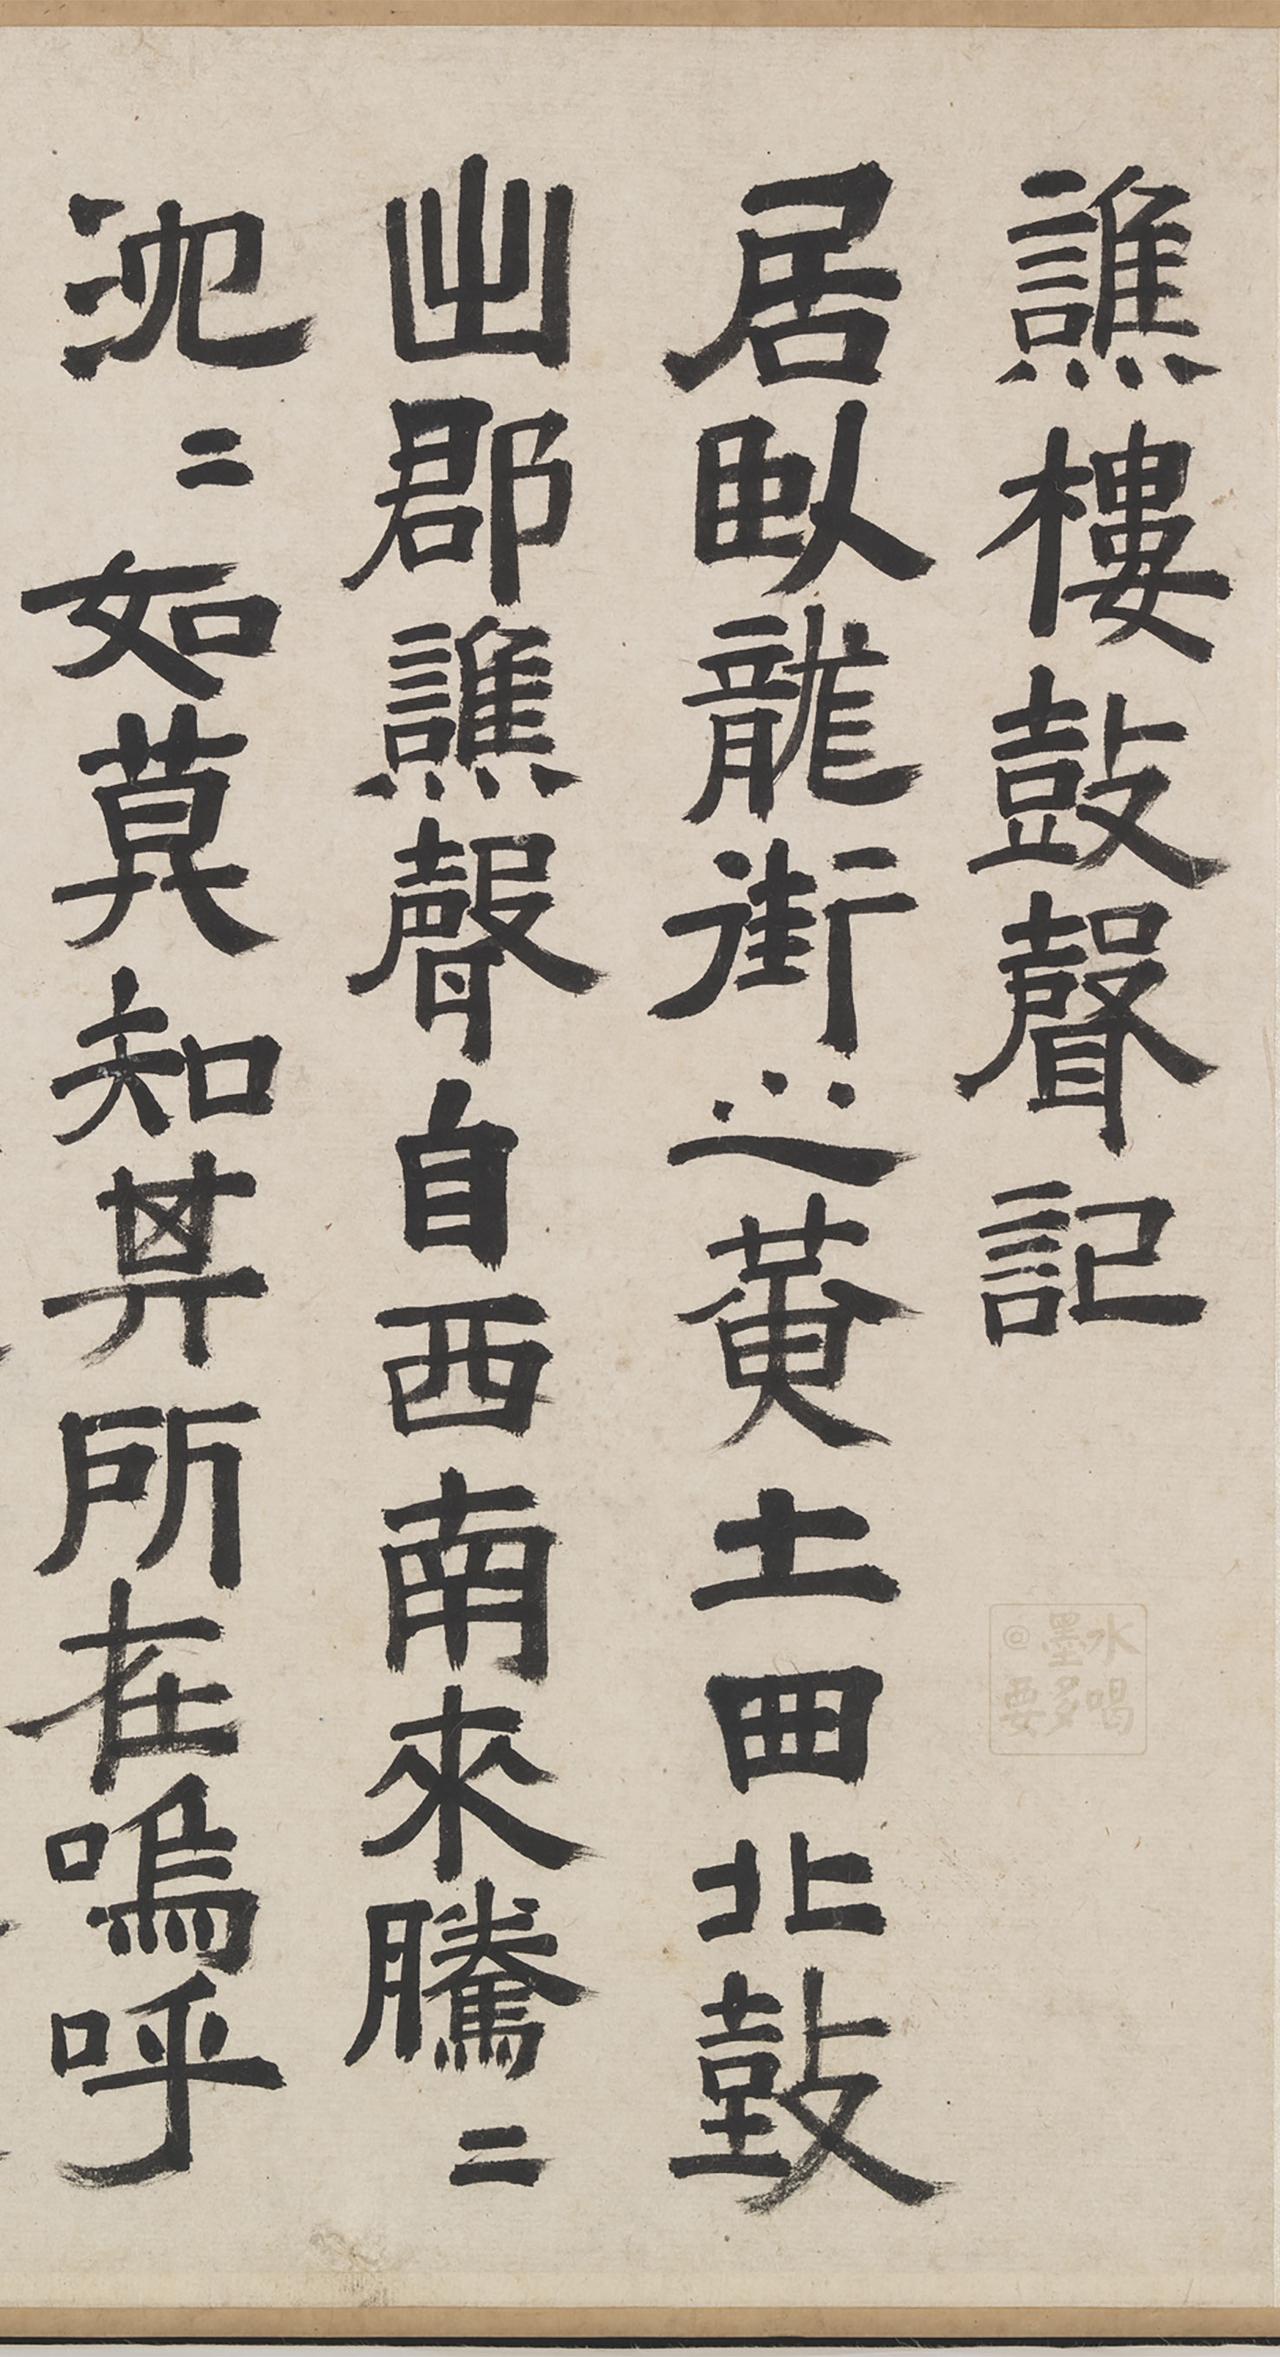 譙樓鼓聲記
居臥龍街之黃土曲北鼓
出郡譙聲自西南來騰〻
沈〻如莫知其所在嗚呼
@墨水
要多喝